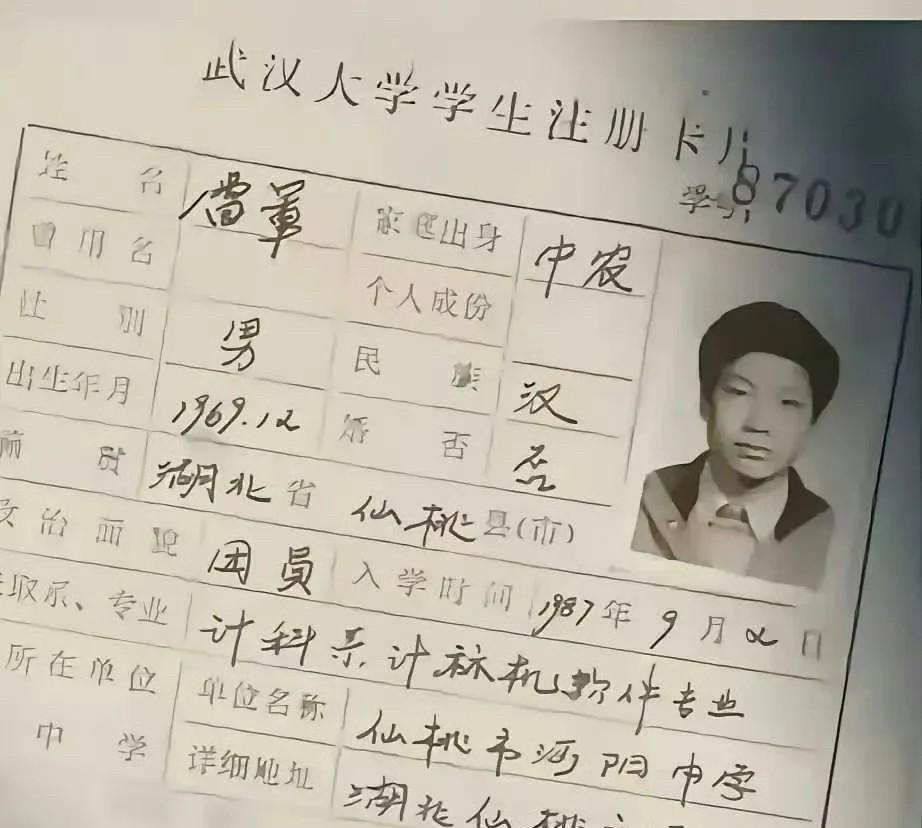 武汉大学学生注册卡片
学号 87030
姓名 雷军 家庭出身 中农
曾用名 个人成份
性别 男 民族 汉
出生年月 1969.12 婚否 否
湖北省 仙桃县(市)
政治面 团员 入学时间 1987年9月2日
取系、专业 计科系计算机软件专业
所在单位 单位名称 仙桃市沔阳中学
中学 详细地址 湖北仙桃市